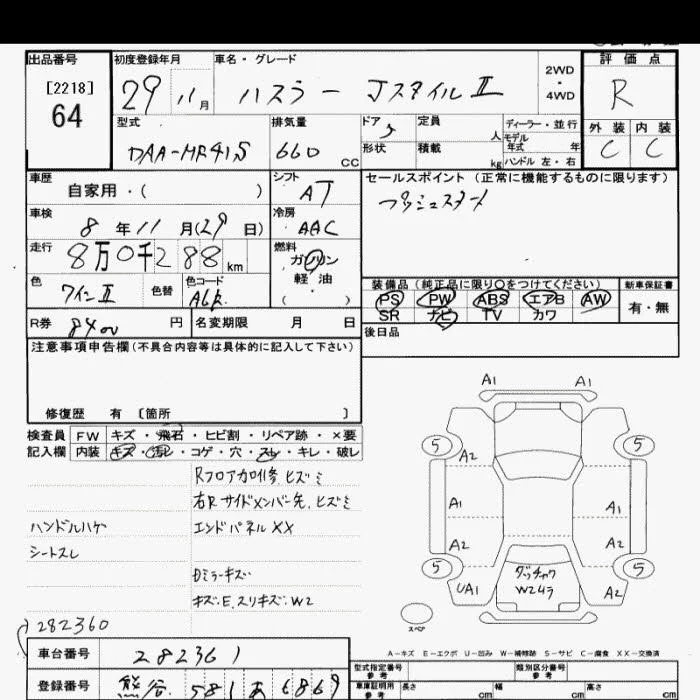 出品番号
[2218]
64
初度登録年月
29 11月
車名・グレード
ハスラー JスタイルⅡ
2WD
・
4WD
評価点
R
外装 内装
C C
型式
DAA-MR41S
排気量
660 CC
ドア 5
形状
定員 人
積載 kg
ディーラー・並行
モデル
年式 年
ハンドル 左・右
車歴
自家用・( )
シフト
AT
セールスポイント (正常に機能するものに限ります)
プッシュスタート
車検
8年11月(29日)
冷房
AAC
走行
8万0千288km
燃料
ガソリン
軽・油
( )
色
ワインⅡ
色替
色コード
装備品 (純正品に限り○をつけてください)
新車保証書
PS PW ABS エアB AW
SR ナビ TV カワ
有・無
R券
8400円
名変期限 月 日
後日品
注意事項申告欄(不具合内容等は具体的に記入して下さい)
修復歴 有 〔箇所 〕
検査員 FW キズ・飛石・ヒビ割・リペア跡・×要
記入欄 内装 キズ・汚レ・コゲ・穴・スレ・キレ・破レ
Rフロア加修、ヒズミ
右Rサイドメンバー先、ヒズミ
ハンドルハゲ
エンドパネルXX
シートスレ
Dミラーキズ
キズ.E.スリキズ.W2
282360
車台番号
282361
登録番号
熊谷 581 あ 6869
A1 A1
5 5
A2
A1 A1
A2 A2
5 5
UA1 A2
ダッチャク
W2ムラ
スペア
A-キズ E-エクボ U-凹み W-補修跡 S-サビ C-腐食 XX-交換済
型式指定番号
参考
類別区分番号
参考
車庫証明用
参考
長さ cm
幅 cm
高さ cm